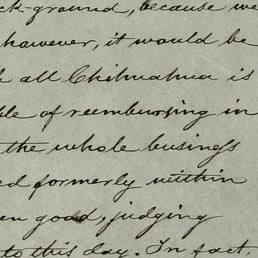 ck-ground, because we
however, it would be
all Chihuahua is
ble of reembursing in
the whole business
ed formerly within
en good, judging
to this day. In fact,